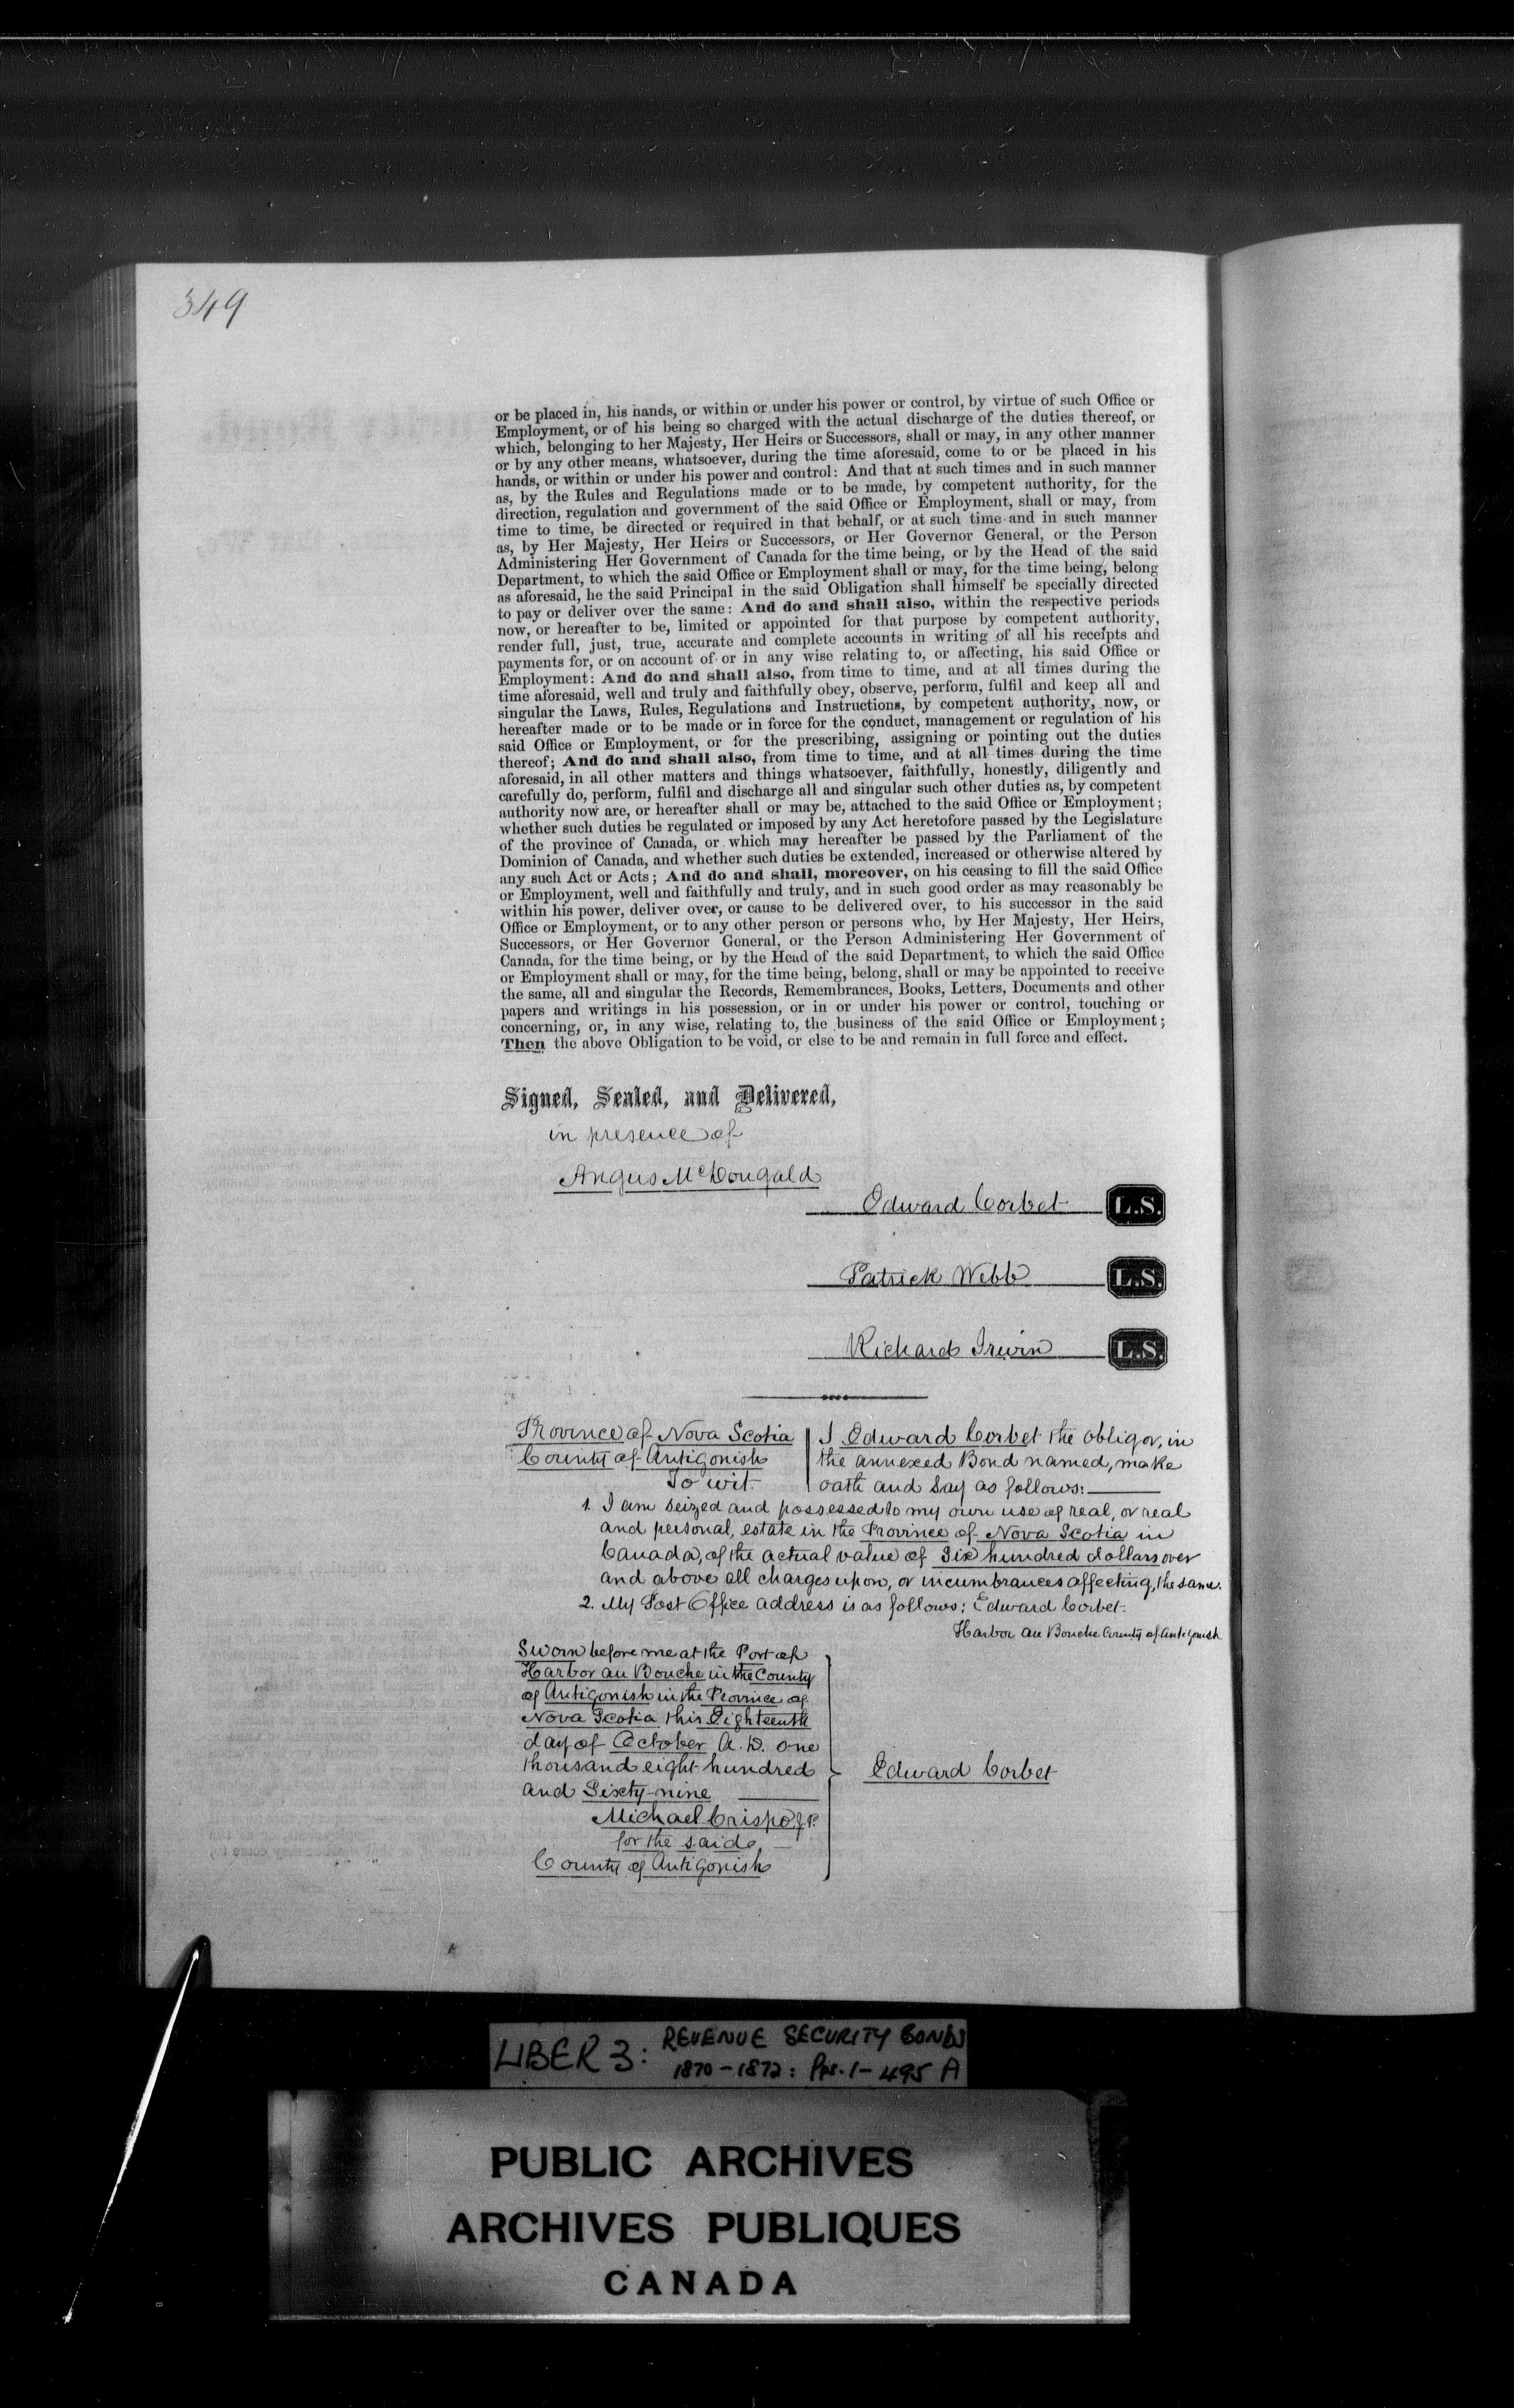 349
or be placed in, his hands, or within or under his power or control, by virtue of such Office or
Employment, or of his being so charged with the actual discharge of the duties thereof, or
which, belonging to her Majesty, Her Heirs or Successors, shall or may, in any other manner
or by any other means, whatsoever, during the time aforesaid, come to or be placed in his
hands, or within or under his power and control: And that at such times and in such manner
as, by the Rules and Regulations made or to be made, by competent authority, for the
direction, regulation and government of the said Office or Employment, shall or may, from
time to time, be directed or required in that behalf, or at such time and in such manner
as, by Her Majesty, Her Heirs or Successors, or Her Governor General, or the Person
Administering Her Government of Canada for the time being, or by the Head of the said
Department, to which the said Office or Employment shall or may, for the time being, belong
as aforesaid, he the said Principal in the said Obligation shall himself be specially directed
to pay or deliver over the same: And do and shall also, within the respective periods
now, or hereafter to be, limited or appointed for that purpose by competent authority,
render full, just, true, accurate and complete accounts in writing of all his receipts and
payments for, or on account of or in any wise relating to, or affecting, his said Office or
Employment: And do and shall also, from time to time, and at all times during the
time aforesaid, well and truly and faithfully obey, observe, perform, fulfil and keep all and
singular the Laws, Rules, Regulations and Instructions, by competent authority, now, or
hereafter made or to be made or in force for the conduct, management or regulation of his
said Office or Employment, or for the prescribing, assigning or pointing out the duties
thereof; And do and shall also, from time to time, and at all times during the time
aforesaid, in all other matters and things whatsoever, faithfully, honestly, diligently and
carefully do, perform, fulfil and discharge all and singular such other duties as, by competent
authority now are, or hereafter shall or may be, attached to the said Office or Employment;
whether such duties be regulated or imposed by any Act heretofore passed by the Legislature
of the province of Canada, or which may hereafter be passed by the Parliament of the
Dominion of Canada, and whether such duties be extended, increased or otherwise altered by
any such Act or Acts; And do and shall, moreover, on his ceasing to fill the said Office
or Employment, well and faithfully and truly, and in such good order as may reasonably be
within his power, deliver over, or cause to be delivered over, to his successor in the said
Office or Employment, or to any other person or persons who, by Her Majesty, Her Heirs,
Successors, or Her Governor General, or the Person Administering Her Government of
Canada, for the time being, or by the Head of the said Department, to which the said Office
or Employment shall or may, for the time being, belong, shall or may be appointed to receive
the same, all and singular the Records, Remembrances, Books, Letters, Documents and other
papers and writings in his possession, or in or under his power or control, touching or
concerning, or, in any wise, relating to, the business of the said Office or Employment;
Then the above Obligation to be void, or else to be and remain in full force and effect.
Signed, Sealed, and Delivered,
in presence of
Angus McDougald
Edward Corbet L.S.
Patrick Webb L.S.
Richard Irwin L.S.
Province of Nova Scotia
County of Antigonish
To wit.
I Edward Corbet the obligor, in
the annexed Bond named, make
oath and say as follows:
1. I am seized and possessed to my own use of real, or real
and personal, estate in the Province of Nova Scotia in
Canada, of the actual value of Six hundred dollars over
and above all charges upon, or incumbrances affecting, the same.
2. My Post Office address is as follows; Edward Corbet.
Harbor au Bouche County of Antigonish
Sworn before me at the Port of
Harbor au Bouche in the County
of Antigonish in the Province of
Nova Scotia this Eighteenth
day of October A.D. one
thousand eight hundred
and Sixty-nine
Michael Crispo J.P.
for the said
County of Antigonish
Edward Corbet
LIBER 3: REVENUE SECURITY BONDS
1870-1872: Pps. 1-495 A
PUBLIC ARCHIVES
ARCHIVES PUBLIQUES
CANADA